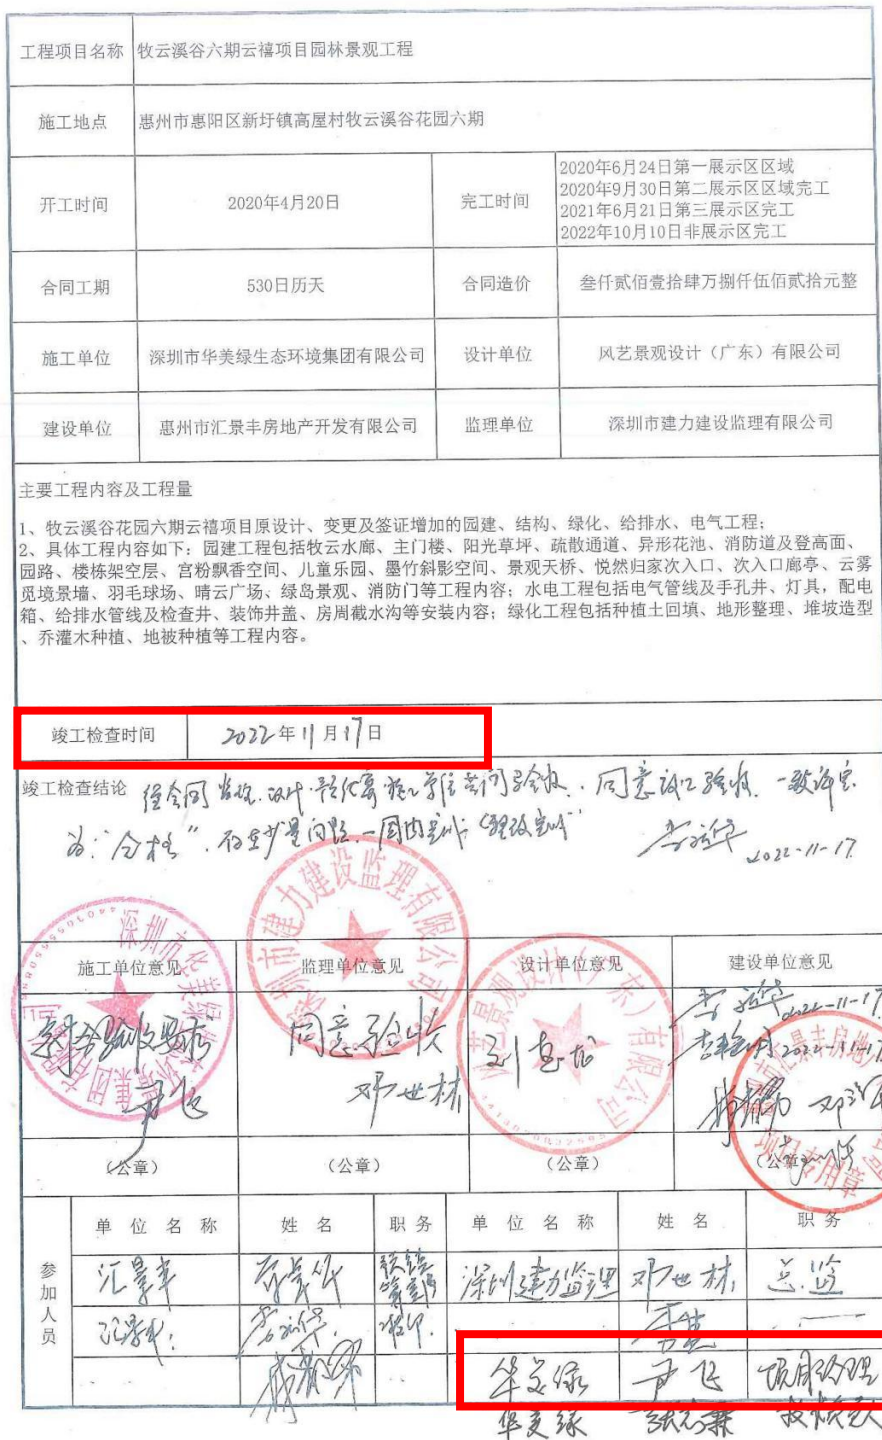 工程项目名称 牧云溪谷六期云禧项目园林景观工程
施工地点 惠州市惠阳区新圩镇高屋村牧云溪谷花园六期
开工时间 2020年4月20日 完工时间 2020年6月24日第一展示区区域
2020年9月30日第二展示区区域完工
2021年6月21日第三展示区完工
2022年10月10日非展示区完工
合同工期 530日历天 合同造价 叁仟贰佰壹拾肆万捌仟伍佰贰拾元整
施工单位 深圳市华美绿生态环境集团有限公司 设计单位 风艺景观设计（广东）有限公司
建设单位 惠州市汇景丰房地产开发有限公司 监理单位 深圳市建力建设监理有限公司
主要工程内容及工程量
1、牧云溪谷花园六期云禧项目原设计、变更及签证增加的园建、结构、绿化、给排水、电气工程；
2、具体工程内容如下：园建工程包括牧云水廊、主门楼、阳光草坪、疏散通道、异形花池、消防道及登高面、
园路、楼栋架空层、宫粉飘香空间、儿童乐园、墨竹斜影空间、景观天桥、悦然归家次入口、次入口廊亭、云雾
觅境景墙、羽毛球场、晴云广场、绿岛景观、消防门等工程内容；水电工程包括电气管线及手孔井、灯具，配电
箱、给排水管线及检查井、装饰井盖、房周截水沟等安装内容；绿化工程包括种植土回填、地形整理、堆坡造型
、乔灌木种植、地被种植等工程内容。
竣工检查时间 2022年11月17日
竣工检查结论 同意竣工验收.一致评定
为:"合格".存在少量问题,一周内
2022-11-17
施工单位意见 监理单位意见 设计单位意见 建设单位意见
2022-11-17
同意验收 2022-11-17
尹飞 邓世材
（公章） （公章） （公章） （公章）
深圳市华美绿生态环境集团有限公司
深圳市建力建设监理有限公司
风艺景观设计（广东）有限公司
参加人员
单位名称 姓名 职务 单位名称 姓名 职务
汇景丰 深圳建力监理 邓世材 总监
汇景丰
华美绿 尹飞 项目经理
华美绿 技术负责人